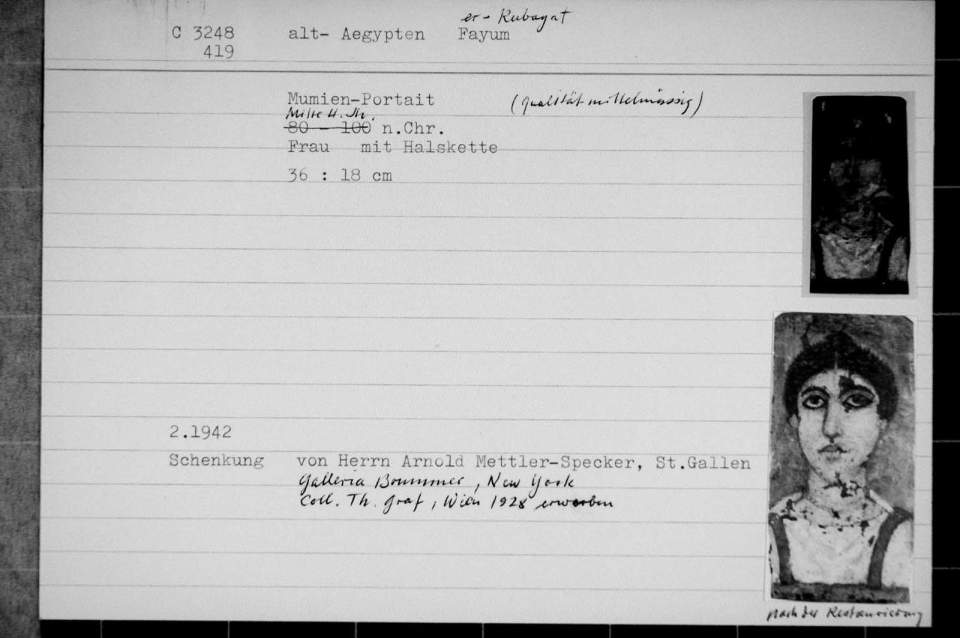 er-Rubayat
C 3248 alt- Aegypten Fayum
419
Mumien-Portait (Qualität mittelmässig)
Mitte 4. Jh.
80 - 100 n.Chr.
Frau mit Halskette
36 : 18 cm
2.1942
Schenkung von Herrn Arnold Mettler-Specker, St.Gallen
Galleria Brummer, New York
Coll. Th. Graf, Wien 1928 erworben
nach der Restaurierung